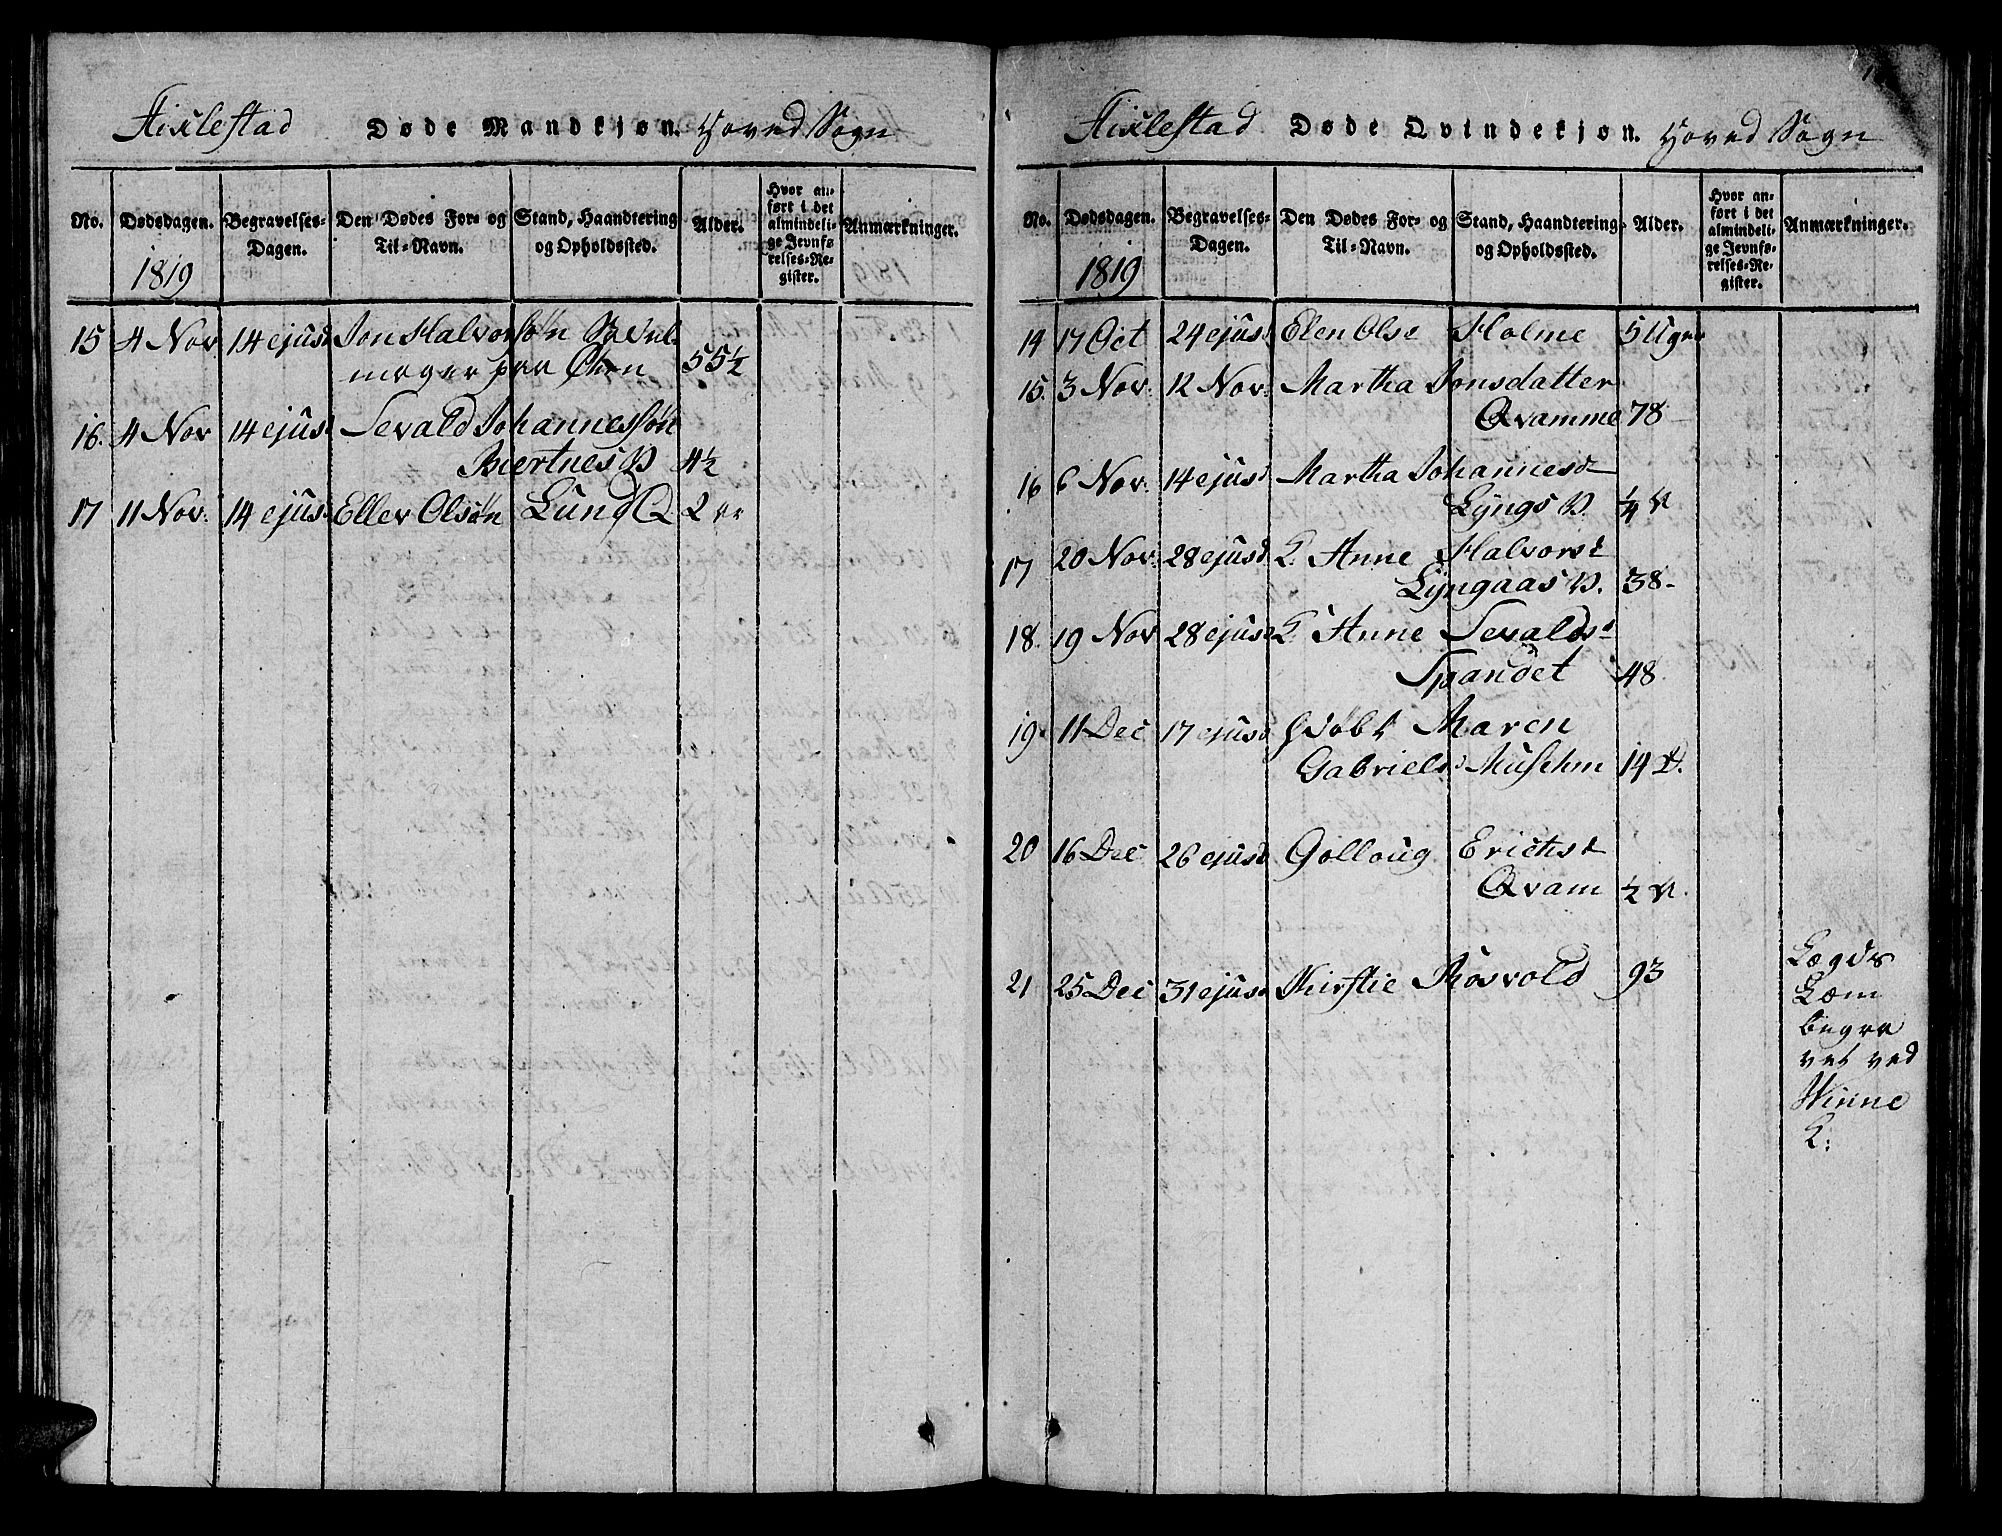 Stixlestad Døde Mandkjøn. Hoved Sogn
No. Dødsdagen. Begravelses-Dagen. Den Dødes For- og Til-Navn. Stand, Haandtering og Opholdssted. Alder. Hvor anført i det almindelige Jevnførelses-Register. Anmærkninger.
1819
15 4 Nov 14 ejusd Jon Halvorsøn
mager paa Øren 55½
16. 4 Nov 14 ejusd Sevald Johannessøn
Biertnes P 4½
17 11 Nov. 14 ejusd Eller Olsøn Lund Q 2
Stixlestad Døde Qvindekjøn. Hoved Sogn
No. Dødsdagen. Begravelses-Dagen. Den Dødes For- og Til-Navn. Stand, Haandtering og Opholdssted. Alder. Hvor anført i det almindelige Jevnførelses-Register. Anmærkninger.
1819
14 17 Oct 24 ejusd Elen Olsd Holme 5 Uger
15. 3 Nov. 12 Nov. Martha Jonsdatter
Qvamme 78
16 6 Nov. 14 ejusd Martha Johannesd
Lyngs P. ¼
17 20 Nov. 28 ejusd K. Anne Halvorsd
Lyngaas P. 38
18. 19 Nov 28 ejusd K. Anne Sevaldsd
Spandet 48
19. 11 Dec 17 ejusd Maren
Gabrielsd Muschm 14
20 16 Dec 26 ejusd Golloug Erichsd
Qvam ½
21 25 Dec 31 ejusd Kirstie Rosvold 93 Lægds
Lem
begra
vet ved
Winne
K: